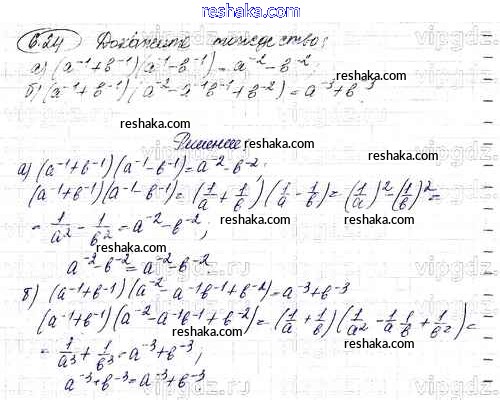 reshaka.com
6.24 Докажите тождество:
а) (a⁻¹+b⁻¹)(a⁻¹-b⁻¹)=a⁻²-b⁻²;
б) (a⁻¹+b⁻¹)(a⁻²-a⁻¹b⁻¹+b⁻²)=a⁻³+b⁻³
reshaka.com
Решение
reshaka.com
а) (a⁻¹+b⁻¹)(a⁻¹-b⁻¹)=a⁻²-b⁻²;
(a⁻¹+b⁻¹)(a⁻¹-b⁻¹)=(1/a+1/b)(1/a-1/b)=(1/a)²-(1/b)²=
=1/a²-1/b²=a⁻²-b⁻²;
reshaka.com
a⁻²-b⁻²=a⁻²-b⁻²
б) (a⁻¹+b⁻¹)(a⁻²-a⁻¹b⁻¹+b⁻²)=a⁻³+b⁻³
(a⁻¹+b⁻¹)(a⁻²-a⁻¹b⁻¹+b⁻²)=(1/a+1/b)(1/a²-1/a 1/b+1/b²)=
=1/a³+1/b³=a⁻³+b⁻³;
reshaka.com
a⁻³+b⁻³=a⁻³+b⁻³;
reshaka.com
vipgdz